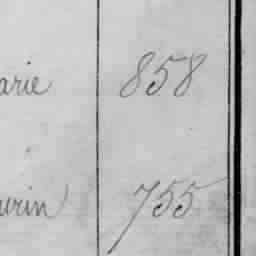 arie 858
urin 755